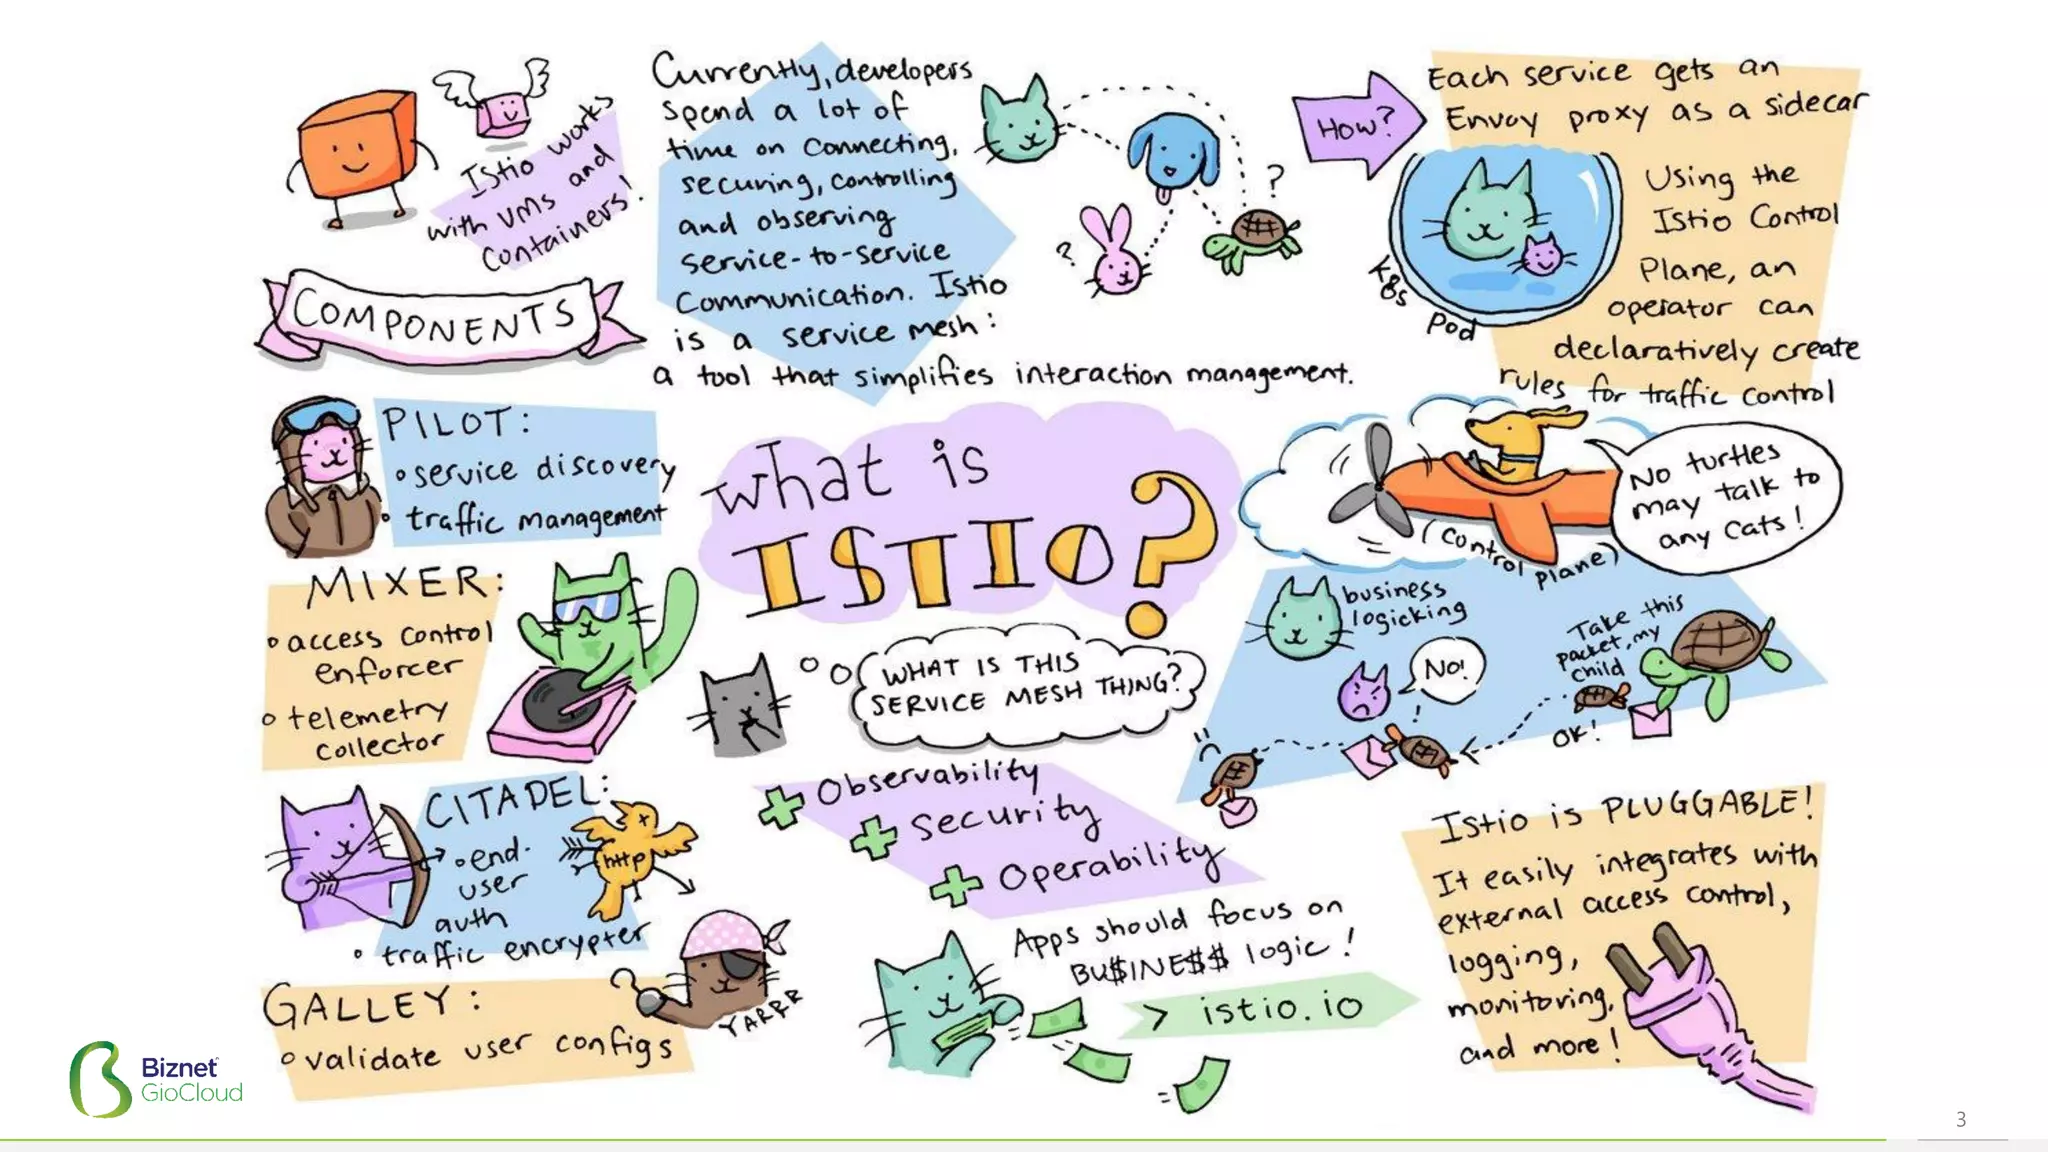 Istio works
with VMs and
Containers!
Currently, developers
spend a lot of
time on connecting,
securing, controlling
and observing
service-to-service
communication. Istio
is a service mesh:
a tool that simplifies interaction management.
?
?
How?
Each service gets an
Envoy proxy as a sidecar
Using the
Istio Control
Plane, an
operator can
declaratively create
rules for traffic control
K8s Pod
COMPONENTS
PILOT:
• service discovery
• traffic management
MIXER:
• access control
enforcer
• telemetry
collector
CITADEL:
• end-
user
auth
• traffic encrypter
http
GALLEY:
• validate user configs
YARRR
What is
ISTIO?
WHAT IS THIS
SERVICE MESH THING?
+ Observability
+ Security
+ Operability
Apps should focus on
BU$INE$$ logic!
> istio.io
No turtles
may talk to
any cats!
(control plane)
business
logicking
No!
!
Take this
packet, my
child
OK!
Istio is PLUGGABLE!
It easily integrates with
external access control,
logging,
monitoring,
and more!
Biznet
GioCloud
3